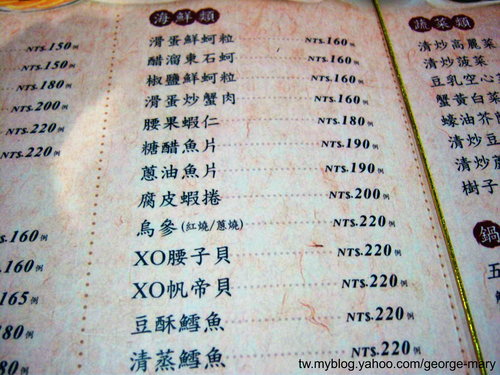 NT$.150例
NT$.150例
NT$.180例
NT$.200例
NT$.220例
NT$.220例
$.160例
.160例
165例
80例
80例
海鮮類
滑蛋鮮蚵粒 NT$.160例
醋溜東石蚵 NT$.160例
椒鹽鮮蚵粒 NT$.160例
滑蛋炒蟹肉 NT$.160例
腰果蝦仁 NT$.180例
糖醋魚片 NT$.190例
蔥油魚片 NT$.190例
腐皮蝦捲 NT$.200例
烏參(紅燒/蔥燒) NT$.220例
XO腰子貝 NT$.220例
XO帆帝貝 NT$.220例
豆酥鱈魚 NT$.220例
清蒸鱈魚 NT$.220例
蔬菜類
清炒高麗菜
清炒菠菜
豆乳空心
蟹黃白菜
蠔油芥
清炒豆
清炒
樹子
鍋
五
tw.myblog.yahoo.com/george-mary